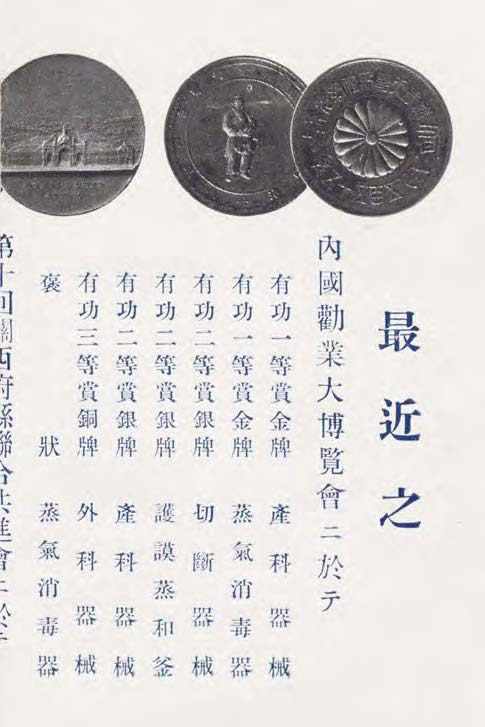 最近之
內國勸業大博覧會ニ於テ
有功一等賞金牌 產科器械
有功一等賞金牌 蒸氣消毒器
有功二等賞銀牌 切斷器械
有功二等賞銀牌 護謨蒸和釜
有功二等賞銀牌 產科器械
有功三等賞銅牌 外科器械
褒狀 蒸氣消毒器
第十回關西府縣聯合共進會ニ於テ